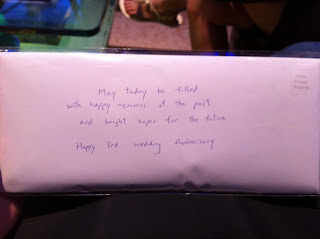 May today be filled
with happy memories of the past
and bright hopes for the future
Happy 3rd Wedding Anniversary